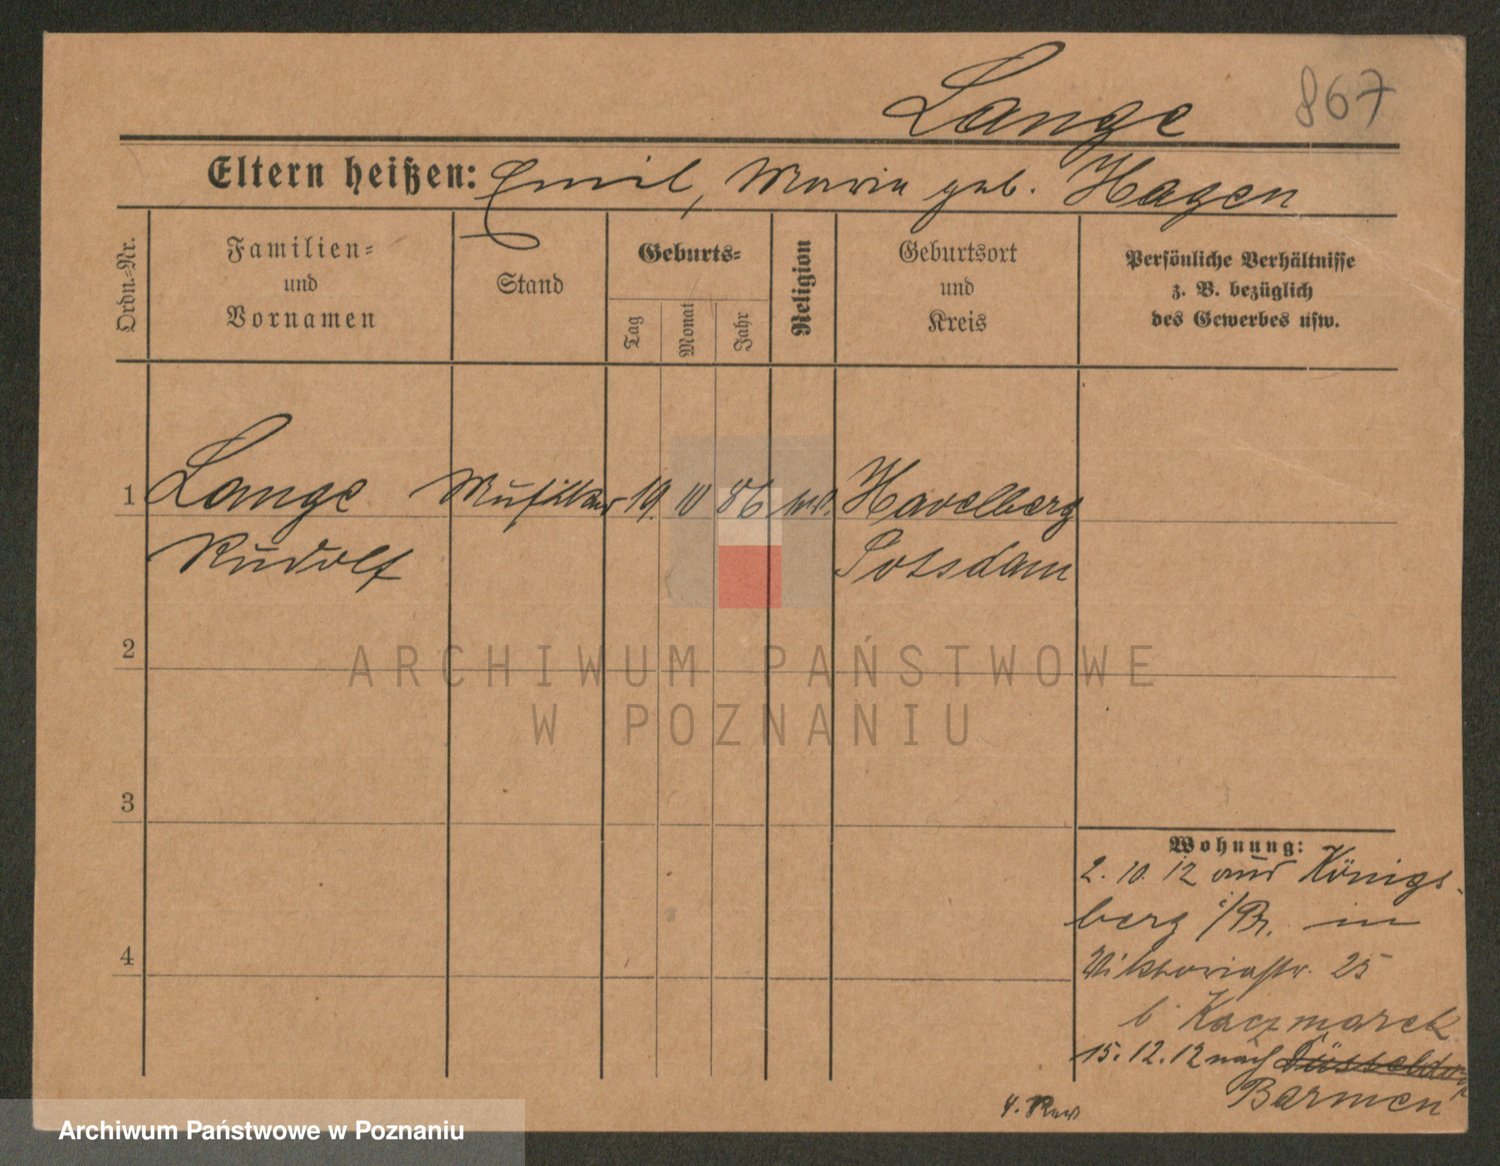 Lange 867
Eltern heißen: Emil, Maria geb. Hagen
Ordn.=Nr.
Familien=
und
Vornamen
Stand
Geburts=
Tag
Monat
Jahr
Religion
Geburtsort
und
Kreis
Persönliche Verhältnisse
z. B. bezüglich
des Gewerbes usw.
1 Lange Musiker 19. 10 86 Havelberg
Rudolf Potsdam
2
3
4
Wohnung:
2. 10. 12 aus Königs-
berg i/Pr. in
Viktoriastr. 25
b Kaczmarek
15. 12. 12 nach Düsseldorf
Barmen
4. Rev
ARCHIWUM PAŃSTWOWE
W POZNANIU
Archiwum Państwowe w Poznaniu